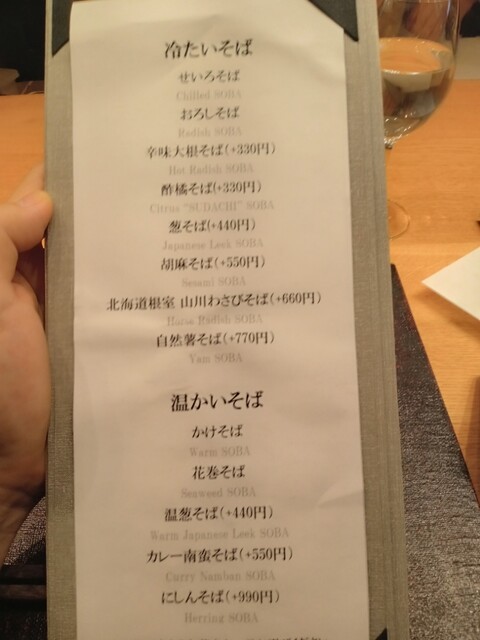 冷たいそば
せいろそば
Chilled SOBA
おろしそば
Radish SOBA
辛味大根そば(+330円)
Hot Radish SOBA
酢橘そば(+330円)
Citrus "SUDACHI" SOBA
葱そば(+440円)
Japanese Leek SOBA
胡麻そば(+550円)
Sesami SOBA
北海道根室 山川わさびそば(+660円)
Horse Radish SOBA
自然薯そば(+770円)
Yam SOBA
温かいそば
かけそば
Warm SOBA
花巻そば
Seaweed SOBA
温葱そば(+440円)
Warm Japanese Leek SOBA
カレー南蛮そば(+550円)
Curry Namban SOBA
にしんそば(+990円)
Herring SOBA